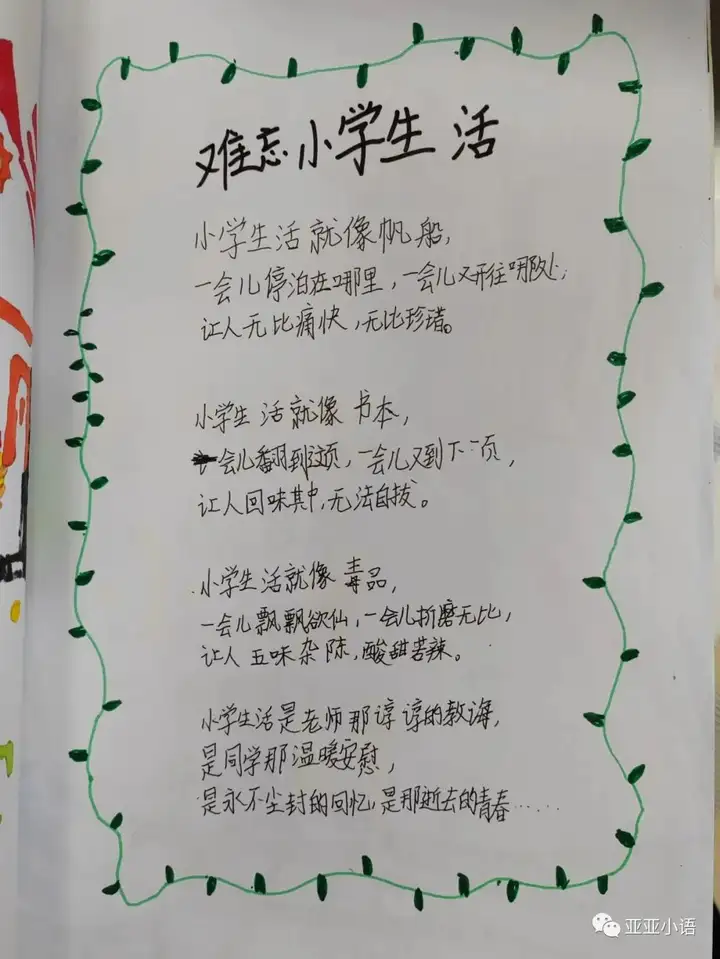 难忘小学生活
小学生活就像帆船,
一会儿停泊在哪里,一会儿又开往哪处,
让人无比痛快,无比珍惜。
小学生活就像书本,
一会儿翻到这页,一会儿又到下一页,
让人回味其中,无法自拔。
小学生活就像毒品,
一会儿飘飘欲仙,一会儿折磨无比,
让人五味杂陈,酸甜苦辣。
小学生活是老师那谆谆的教诲,
是同学那温暖安慰,
是永不尘封的回忆,是那逝去的青春……
亚亚小语